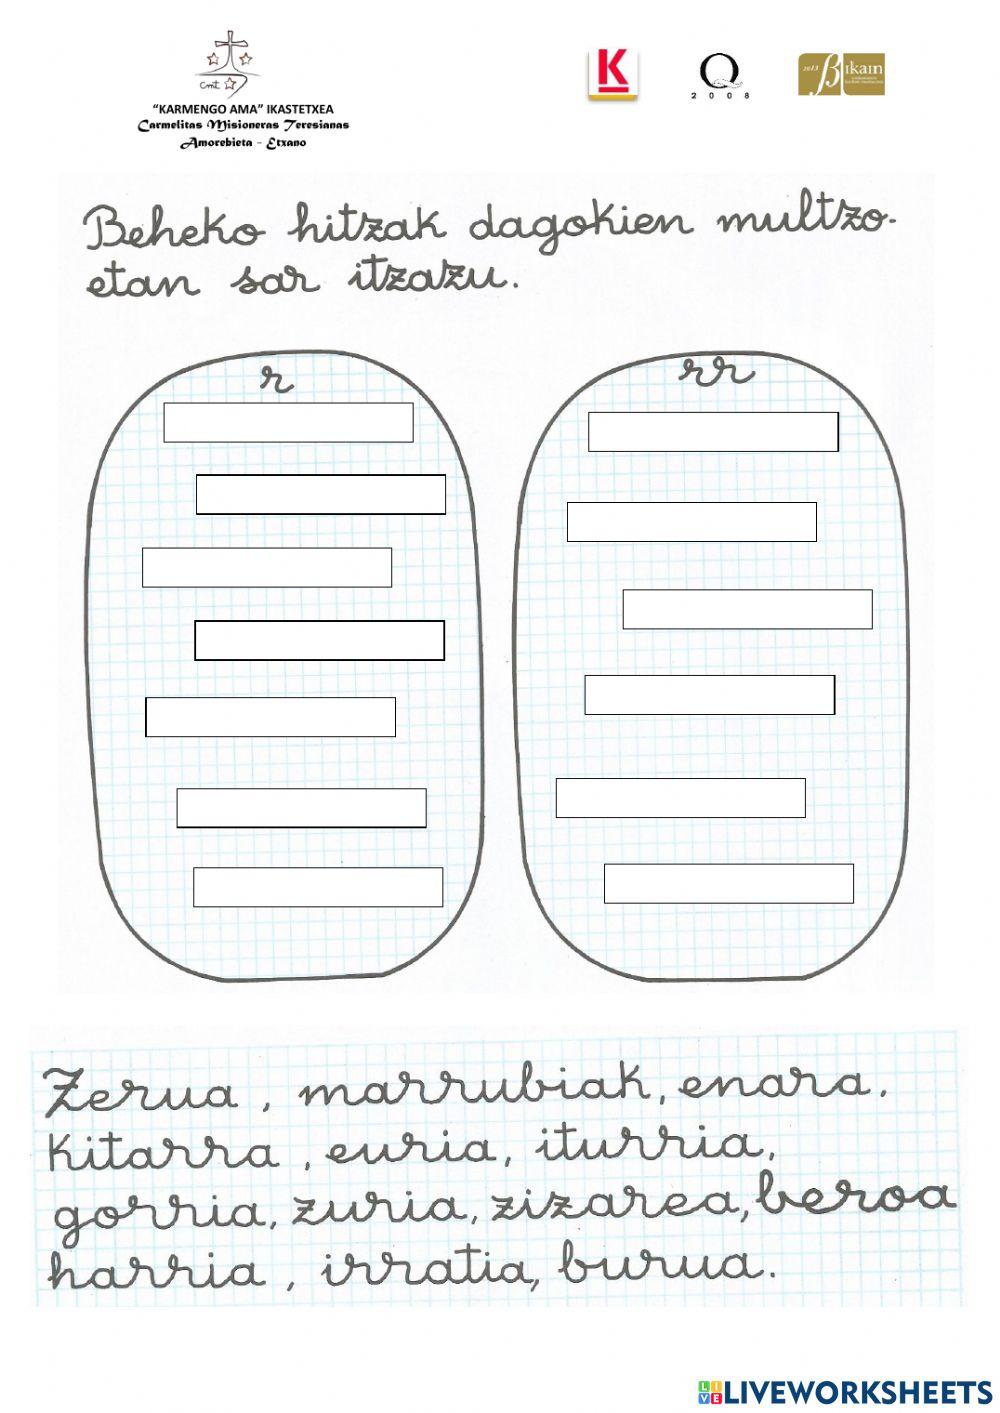 cmt
"KARMENGO AMA" IKASTETXEA
Carmelitas Misioneras Teresianas
Amorebieta - Etxano
K
Q
2008
2013 Bikain
Beheko hitzak dagokien multzo-
etan sar itzazu.
r
rr
Zerua, marrubiak, enara.
Kitarra, euria, iturria,
gorria, zuria, zizarea, beroa
harria, irratia, burua.
LIVEWORKSHEETS